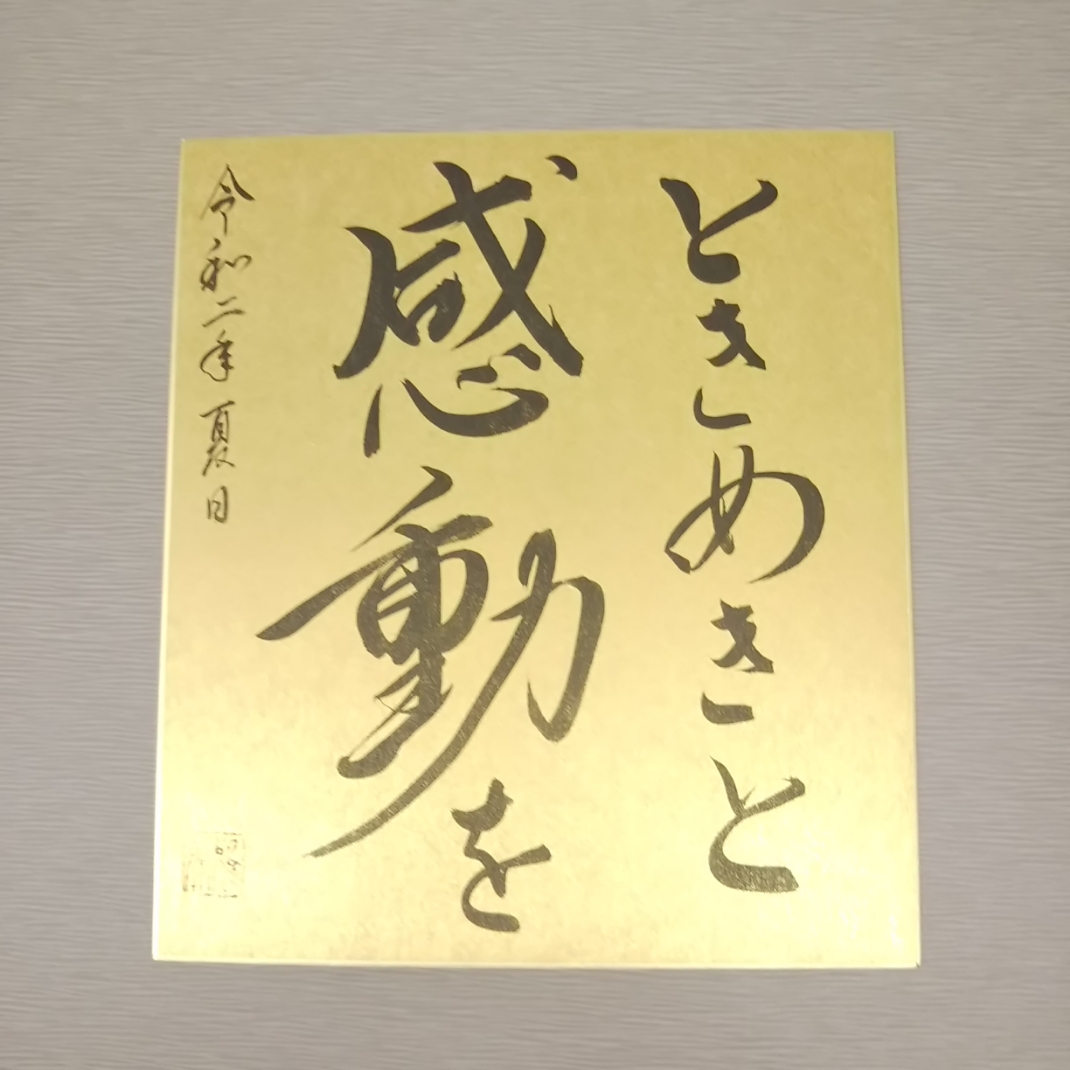 ときめきと
感動を
令和二年夏日